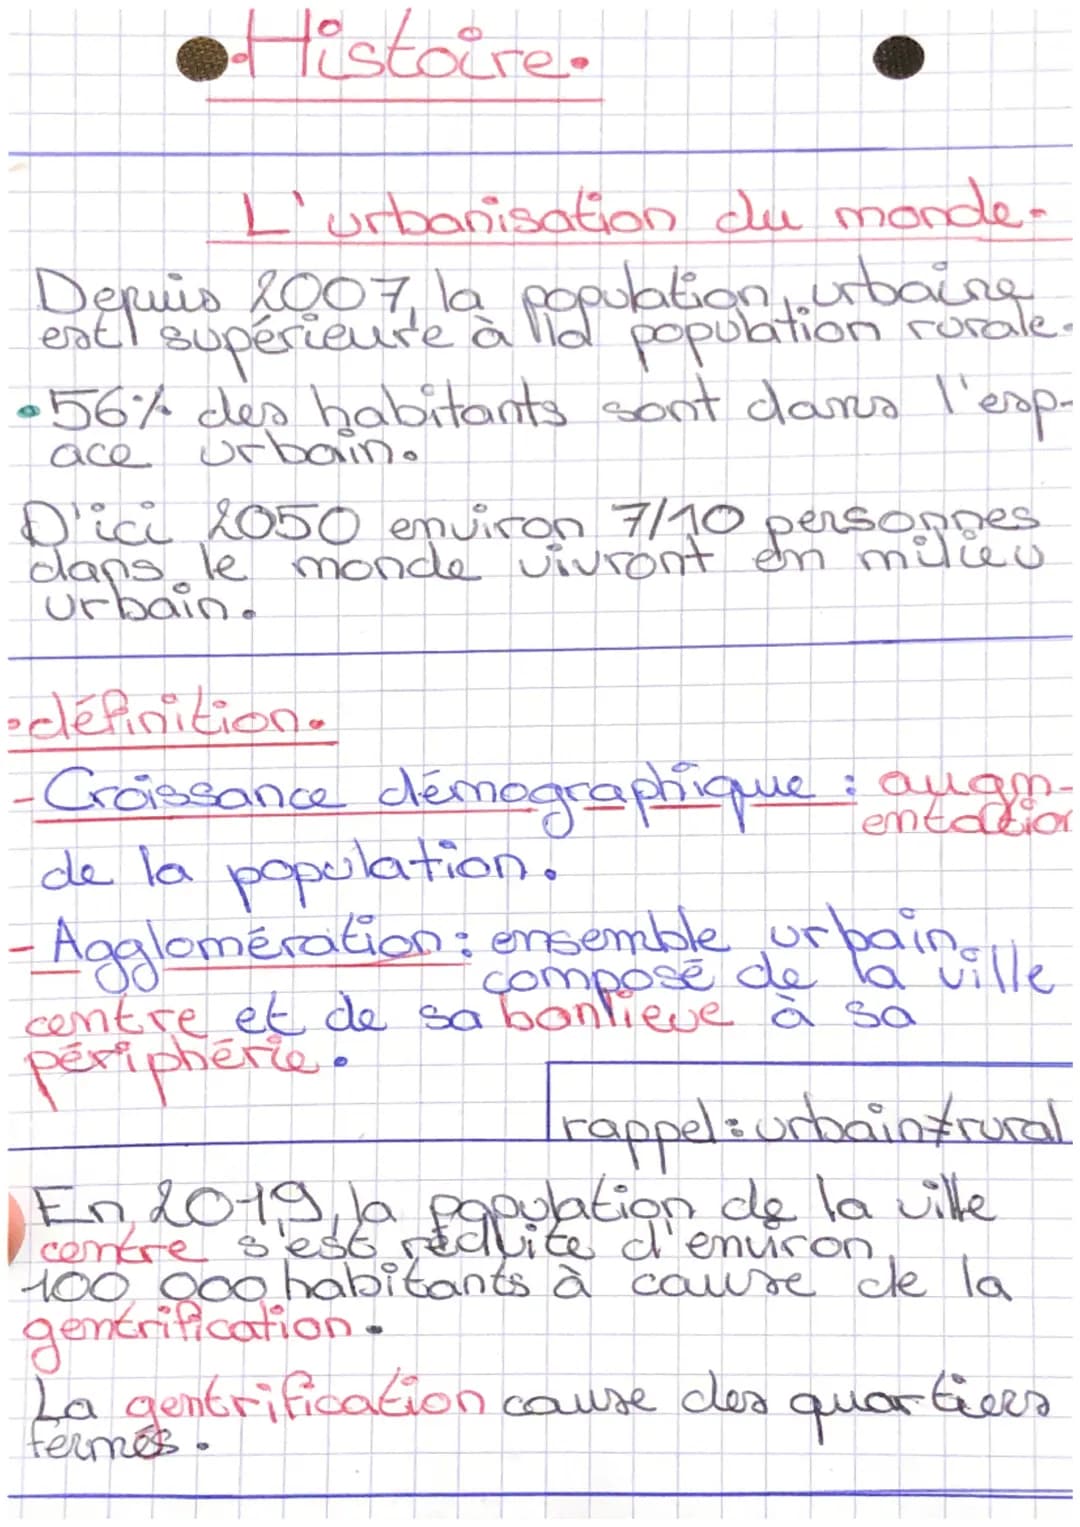 •Histoire.
L'urbanisation du monde-
Depuis 2007, la population urbaine
est supérieure à la population rurale.
•56% des habitants sont dans l'esp-
ace urbain.
D'ici 2050 environ 7/10 personnes
dans le monde vivront en milieu
urbain.
•définition.
-Croissance démographique : augm-
entation
de la population.
- Agglomération : ensemble urbain
composé de la ville
centre et de sa banlieue à sa
périphérie.
rappel : urbain≠rural
En 2019, la population de la ville
centre s'est réduite d'environ
100 000 habitants à cause de la
gentrification.
La gentrification cause des quartiers
fermés.